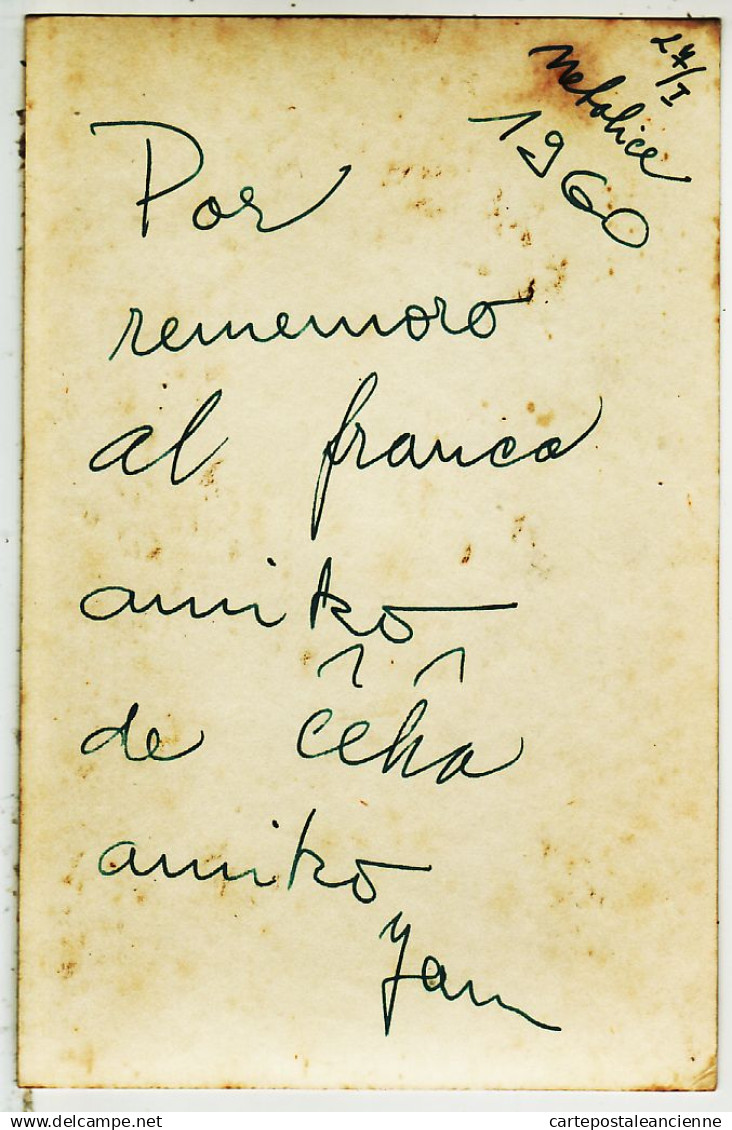 27/I
Netolice
1960
Por
rememoro
al franca
amiko
de ĉeĥa
amiko
Jan
cartepostaleancienne